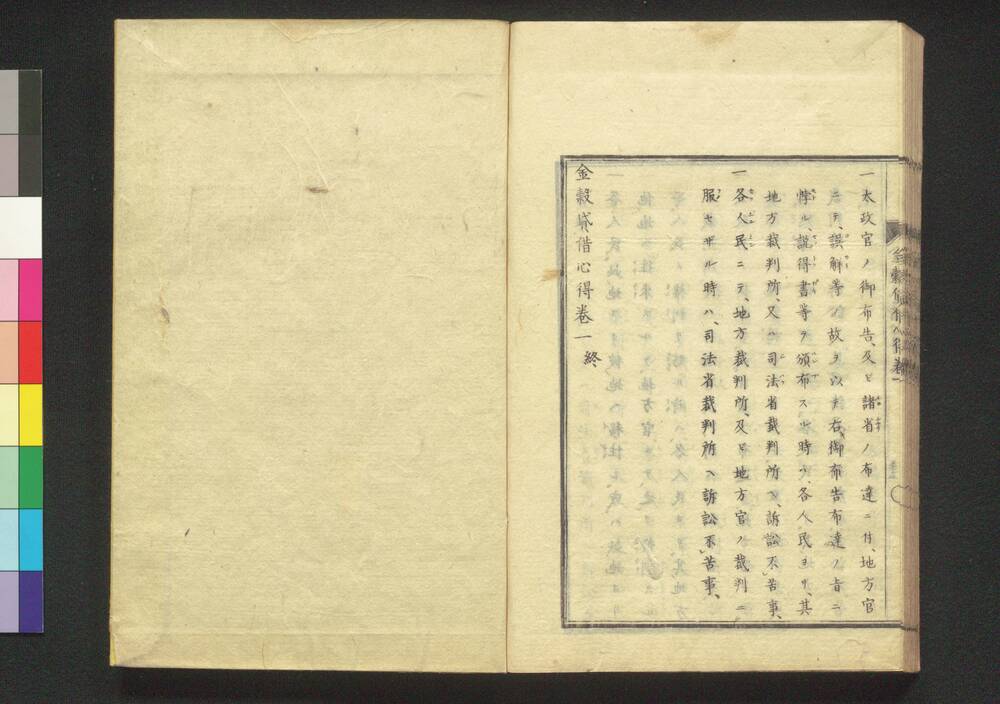 一太政官ノ御布告、及ヒ諸省ノ布達ニ付、地方官
ニテ、誤解等ノ故ヲ以テ、右御布告布達ノ旨ニ
悖ル、説得書等ヲ頒布スル時ハ、各人民ヨリ、其
地方裁判所、又ハ司法省裁判所ヘ、訴訟不苦事、
一各人民ニテ、地方裁判所、及ヒ地方官ノ裁判ニ
服セサル時ハ、司法省裁判所ヘ訴訟不苦事、
金穀貸借心得卷一終